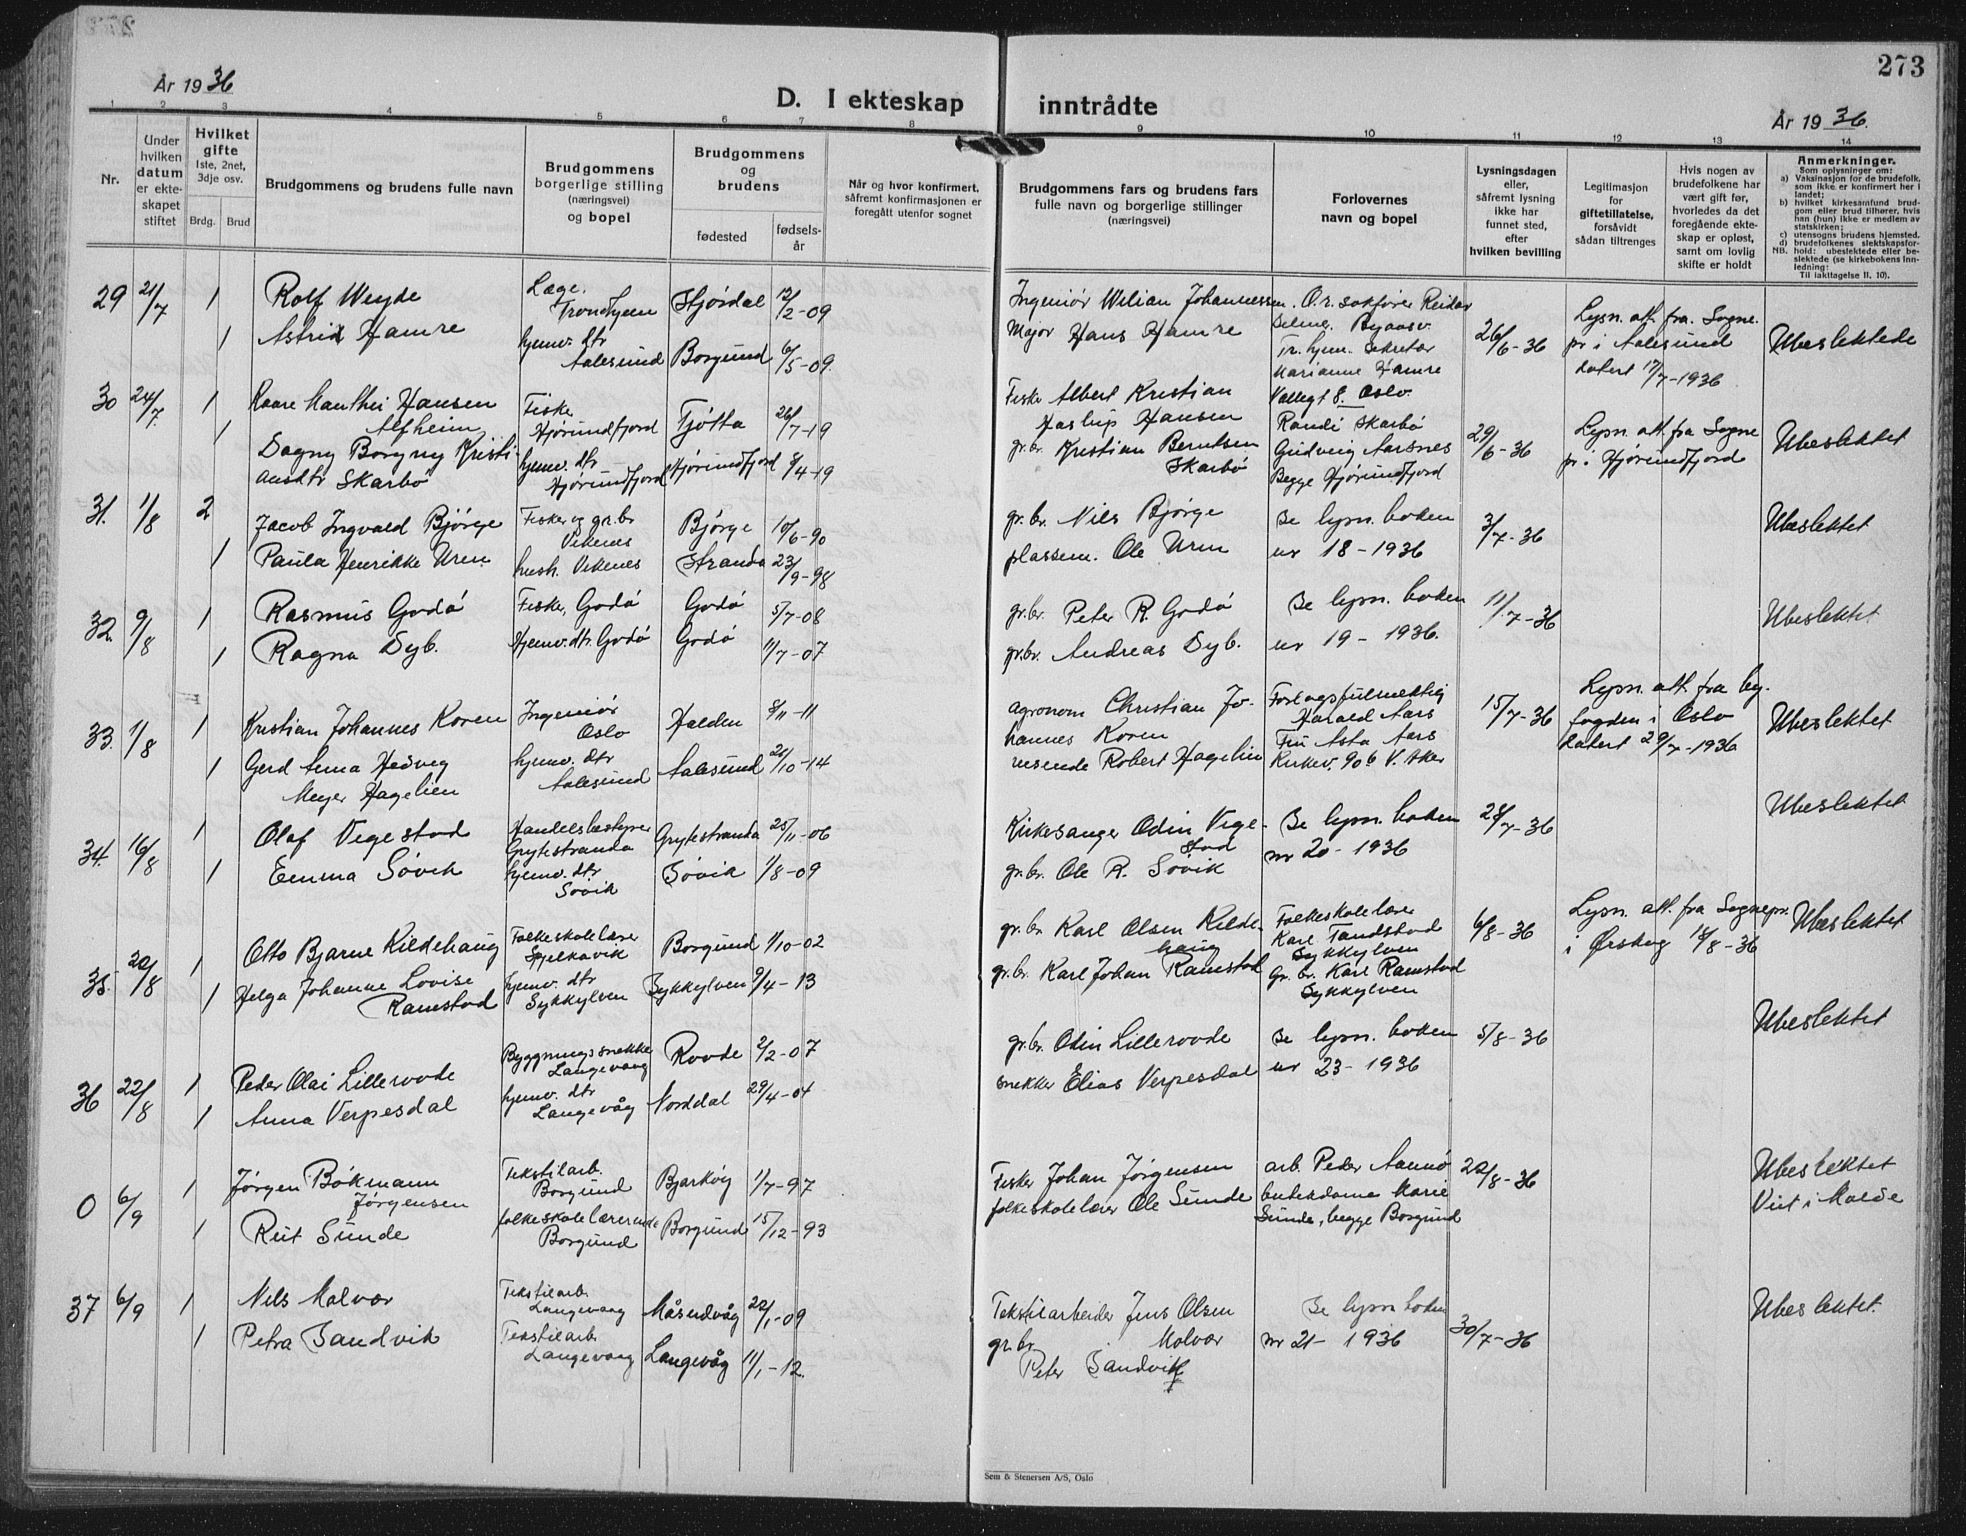 273
År 1936
D. I ekteskap inntrådte
År 1936.
1 2 3 4 5 6 7 8 9 10 11 12 13 14
Nr.
Under hvilken datum er ekteskapet stiftet
Hvilket gifte
1ste, 2net, 3dje osv.
Brdg. Brud
Brudgommens og brudens fulle navn
Brudgommens borgerlige stilling (næringsvei) og bopel
Brudgommens og brudens
fødested
fødselsår
Når og hvor konfirmert, såfremt konfirmasjonen er foregått utenfor sognet
Brudgommens fars og brudens fars fulle navn og borgerlige stillinger (næringsvei)
Forlovernes navn og bopel
Lysningsdagen eller, såfremt lysning ikke har funnet sted, efter hvilken bevilling
Legitimasjon for giftetillatelse, forsåvidt sådan tiltrenges
Hvis nogen av brudefolkene har vært gift før, hvorledes da det foregående ekteskap er opløst, samt om lovlig skifte er holdt
Anmerkninger.
Som oplysninger om:
a) Vaksinasjon for de brudefolk, som ikke er konfirmert her i landet;
b) hvilket kirkesamfund brudgom eller brud tilhører, hvis han (hun) ikke er medlem av statskirken;
c) utensogns brudens hjemsted.
d) brudefolkenes slektskapsforhold: ubeslektede eller beslektede (se kirkebokens innledning:
NB. Til iakttagelse II, 10).
29 21/7 1 Rolf Weyde Læge. Trondhjem Stjørdal 12/2-09 Ingeniør Wilian Johannessen. O.r. sakfører Reidar
1 Astrid Hamre hjemv. dtr Aalesund Borgund 6/5-09 Major Hans Hamre
Tr. hjem. Sekretær Marianne Hamre
Oslo.
26/6-36 Lysn. att. fra. Sogne. pr i Aalesund datert 17/7-1936 Ubeslektede
30 24/7. 1 Kaare Manthei Hansen Alfheim Fisker Hjørundfjord Tjøtta 26/7-19 Fisker Albert Kristian Haslup Hansen Randi Skarbø
1 Dagny Borgny Kristiansdtr Skarbø hjemv. dtr Hjørundfjord Hjørundfjord 8/4-19 gr.br. Kristian Berntsen Skarbø Gudveig Aarsnes Begge Hjørundfjord
29/6-36 Lysn. att. fra Sogne pr. i Hjørundfjord Ubeslektet
31. 1/8 2 Jacob Ingvald Bjørge Fisker og gr.br Vikenes Bjørge 10/6-90 gr.br. Nils Bjørge Se lysn. boken 3/7-36 Ubeslektet
1 Paula Henrikke Urem hush. Vikenes Stranda 23/9-98 plassem. Ole Urem nr 18-1936
32. 9/8 1 Rasmus Godø Fisker, Godø Godø 5/7-08 gr.br. Peter R. Godø Se lysn. boken 11/7-36 Ubeslektet
1 Ragna Dyb. Hjemv. dtr. Godø Godø 11/7-07 gr.br. Andreas Dyb. nr 19-1936.
33. 1/8 1 Kristian Johannes Koren Ingeniør Oslo Halden 8/11-11 agronom Christian Johannes Koren Forlagsfulmektig Harald Aars 15/7-36 Lysn. att. fra byfogden i Oslo datert 29/7-1936 Ubeslektet
1 Gerd Anna Hedveg Meyer Hagelien hjemv. dtr Aalesund Aalesund 21/10-14 reisende Robert Hagelien Fru Asta Aars Kirkev 90b V. Aker
34. 16/8 1 Olaf Vegestad Handelsbestyrer Grytestranda Grytestranda 25/11-06 Kirkesanger Odin Vegestad Se lysn. boken 28/7-36 Ubeslektet
1 Emma Søvik hjemv. dtr Søvik Søvik 1/8-09 gr.br. Ole R. Søvik nr 20-1936
35. 22/8 1 Otto Bjarne Kildehaug Folkeskolelærer Spjelkavik Borgund 1/10-02 gr.br. Karl Olsen Kildehaug Folkeskolelærer Karl Tandstad Sykkylven 6/8-36 Lysn. att. fra Sognepr. i Ørskog 18/8-36 Ubeslektet
1 Helga Johanne Lovise Ramstad hjemv. dtr Sykkylven Sykkylven 9/4-13 gr.br. Karl Johan Ramstad gr. br. Karl Ramstad Sykkylven
36 22/8 1 Peder Olai Lillerovde Byggningssnekker Langevaag Rovde 2/2-07 gr.br. Odin Lillerovde Se lysn. boken 5/8-36 Ubeslektet
1 Anna Verpesdal hjemv. dtr Langevåg Norddal 29/4-04 snekker Elias Verpesdal nr 23-1936
0 6/9 1 Jørgen Bøkmann Jørgensen Tekstilarb. Borgund Bjarkøy 1/7-97 Fisker Johan Jørgensen arb. Peder Aannø 22/8-36 Ubeslektet
1 Rut Sunde folkeskolelærerinde Borgund Borgund 15/12-93 folkeskolelærer Ole Sunde butikdame Marie Sunde, begge Borgund Viet i Molde
37 6/9 1 Nils Malvær Tekstilarb. Langevaag Måsundvåg 22/1-09 Tekstilarbeider Jens Olsen Malvær Se lysn boken 30/7-36 Ubeslektet
1 Petra Sandvik Tekstilarb Langevaag Langevåg 11/1-12. gr.br. Peter Sandvik nr 21-1936
Sem & Stenersen A/S, Oslo